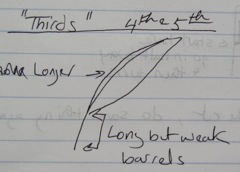 "Thirds"   4th & 5th
Longer
Long but weak
barrels